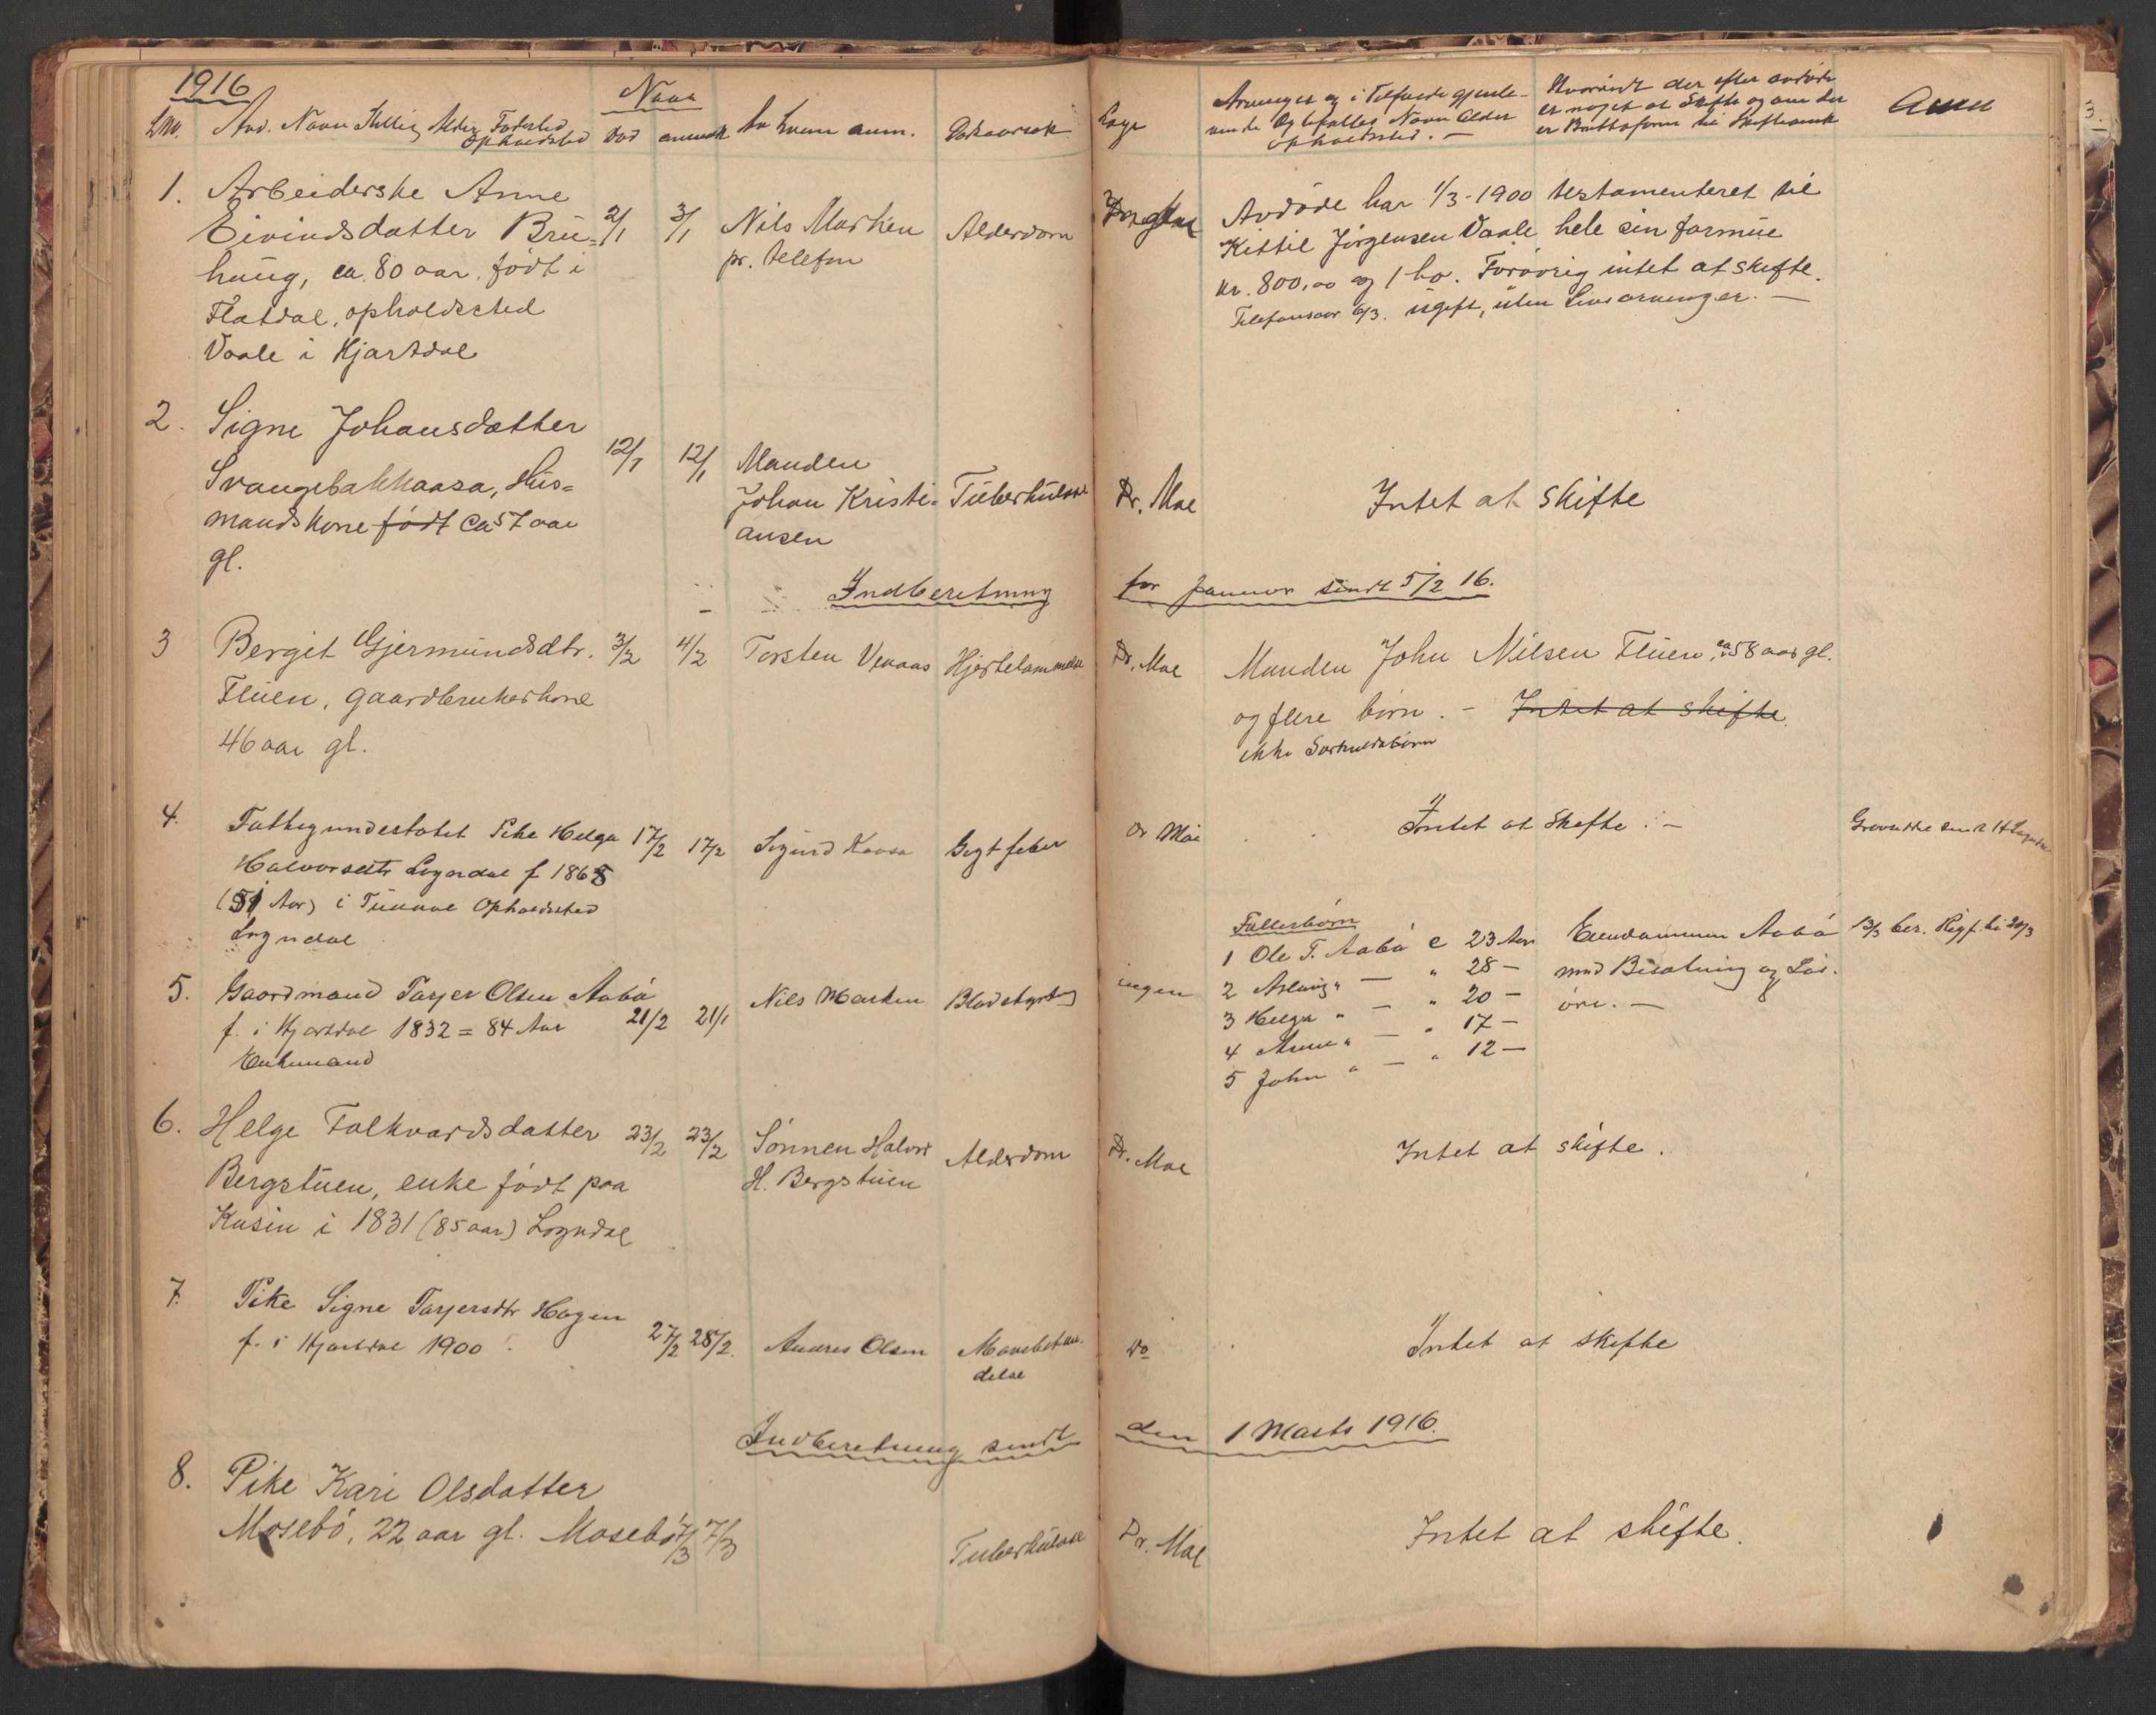 1916
Naar
L.No. Avd. Navn Stilling Alder Fødested Opholdssted
Død anmeldt Av hvem anm. Dødsaarsak
Læge
Arvinger og i Tilfælde gjenle-
vende Egtefælles Navn Alder
Opholdssted. —
Hvorvidt der efter avdøde
er noget at Skifte og om der
er Bruttoform til Skiftearvsk
Anm
1. Arbeiderske Anne
Eivindsdatter Brú= 2/1 3/1 Nils Marken Alderdom
haúg, ca. 80 aar, født i pr. telefon
Flatdal, opholdssted
Vaale i Hjartdal
Avdøde har 1/3-1900 testamenteret til
Kittil Jörgensen Vaale hele sin formúe
kr. 800,00 og 1 ko. Forøvrig intet at skifte.
Telefonsvar 6/3. úgift, úten Livsarvinger. —
2. Signe Johansdatter
12/1 12/1 Manden
Svangebakkaasa, Hús=
Johan Kristi- Túberkúlose Dr. Moe Intet at skifte
mandskone født ca 57 aar
ansen
gl.
Indberetning for Januar sendt 5/2 16.
3 Bergit Gjermúndsdtr. 3/2 4/2 Torsten Venaas Hjertelammelse Dr. Moe Manden John Nilsen Flúen, ca 58 aar gl.
Flúen, gaardbrukerkone og flere børn. - Intet at skifte.
46 aar gl. ikke Særkuldsbørn
4. Fattigunderstøtet Pike Helga 17/2 17/2 Sigurd Kaasa Gigtfeber Dr Moe Intet at skifte. —
Halvorsdtr Løgndal f 1865
(51 Aar) i Túddal Opholdssted
Løgndal
5. Gaardmand Tarjer Olsen Aabø
f. i Hjartdal 1832 = 84 Aar 21/2 21/1 Nils Marken Blodstyrtng ingen
Enkemand
Fællesbørn
1 Ole T. Aabø c 23 Aar
2 Aslaug " — " 28 —
3 Helga " — " 20 —
4 Anne " — " 17 —
5 John " — " 12 —
Eiendommen Aabø
med Besætning og Løs-
øre. —
13/3 ber.
6. Helge Folkvardsdatter 23/2 23/2 Sønnen Halvor Alderdom Dr. Moe Intet at skifte.
Bergstúen, enke født paa H. Bergstúen
Kúsin i 1831 (85 aar) Løgndal
7. Pike Signe Tarjersdtr Hagen
f. i Hjartdal 1900 27/2 28/2. Andres Olsen Mavebeten- Do Intet at skifte
delse
Indberetning sendt den 1 Marts 1916.
8. Pike Kari Olsdatter
Mosebø, 22 aar gl. Mosebø 7/3 7/3 Túberkúlose Dr. Moe Intet at skifte.